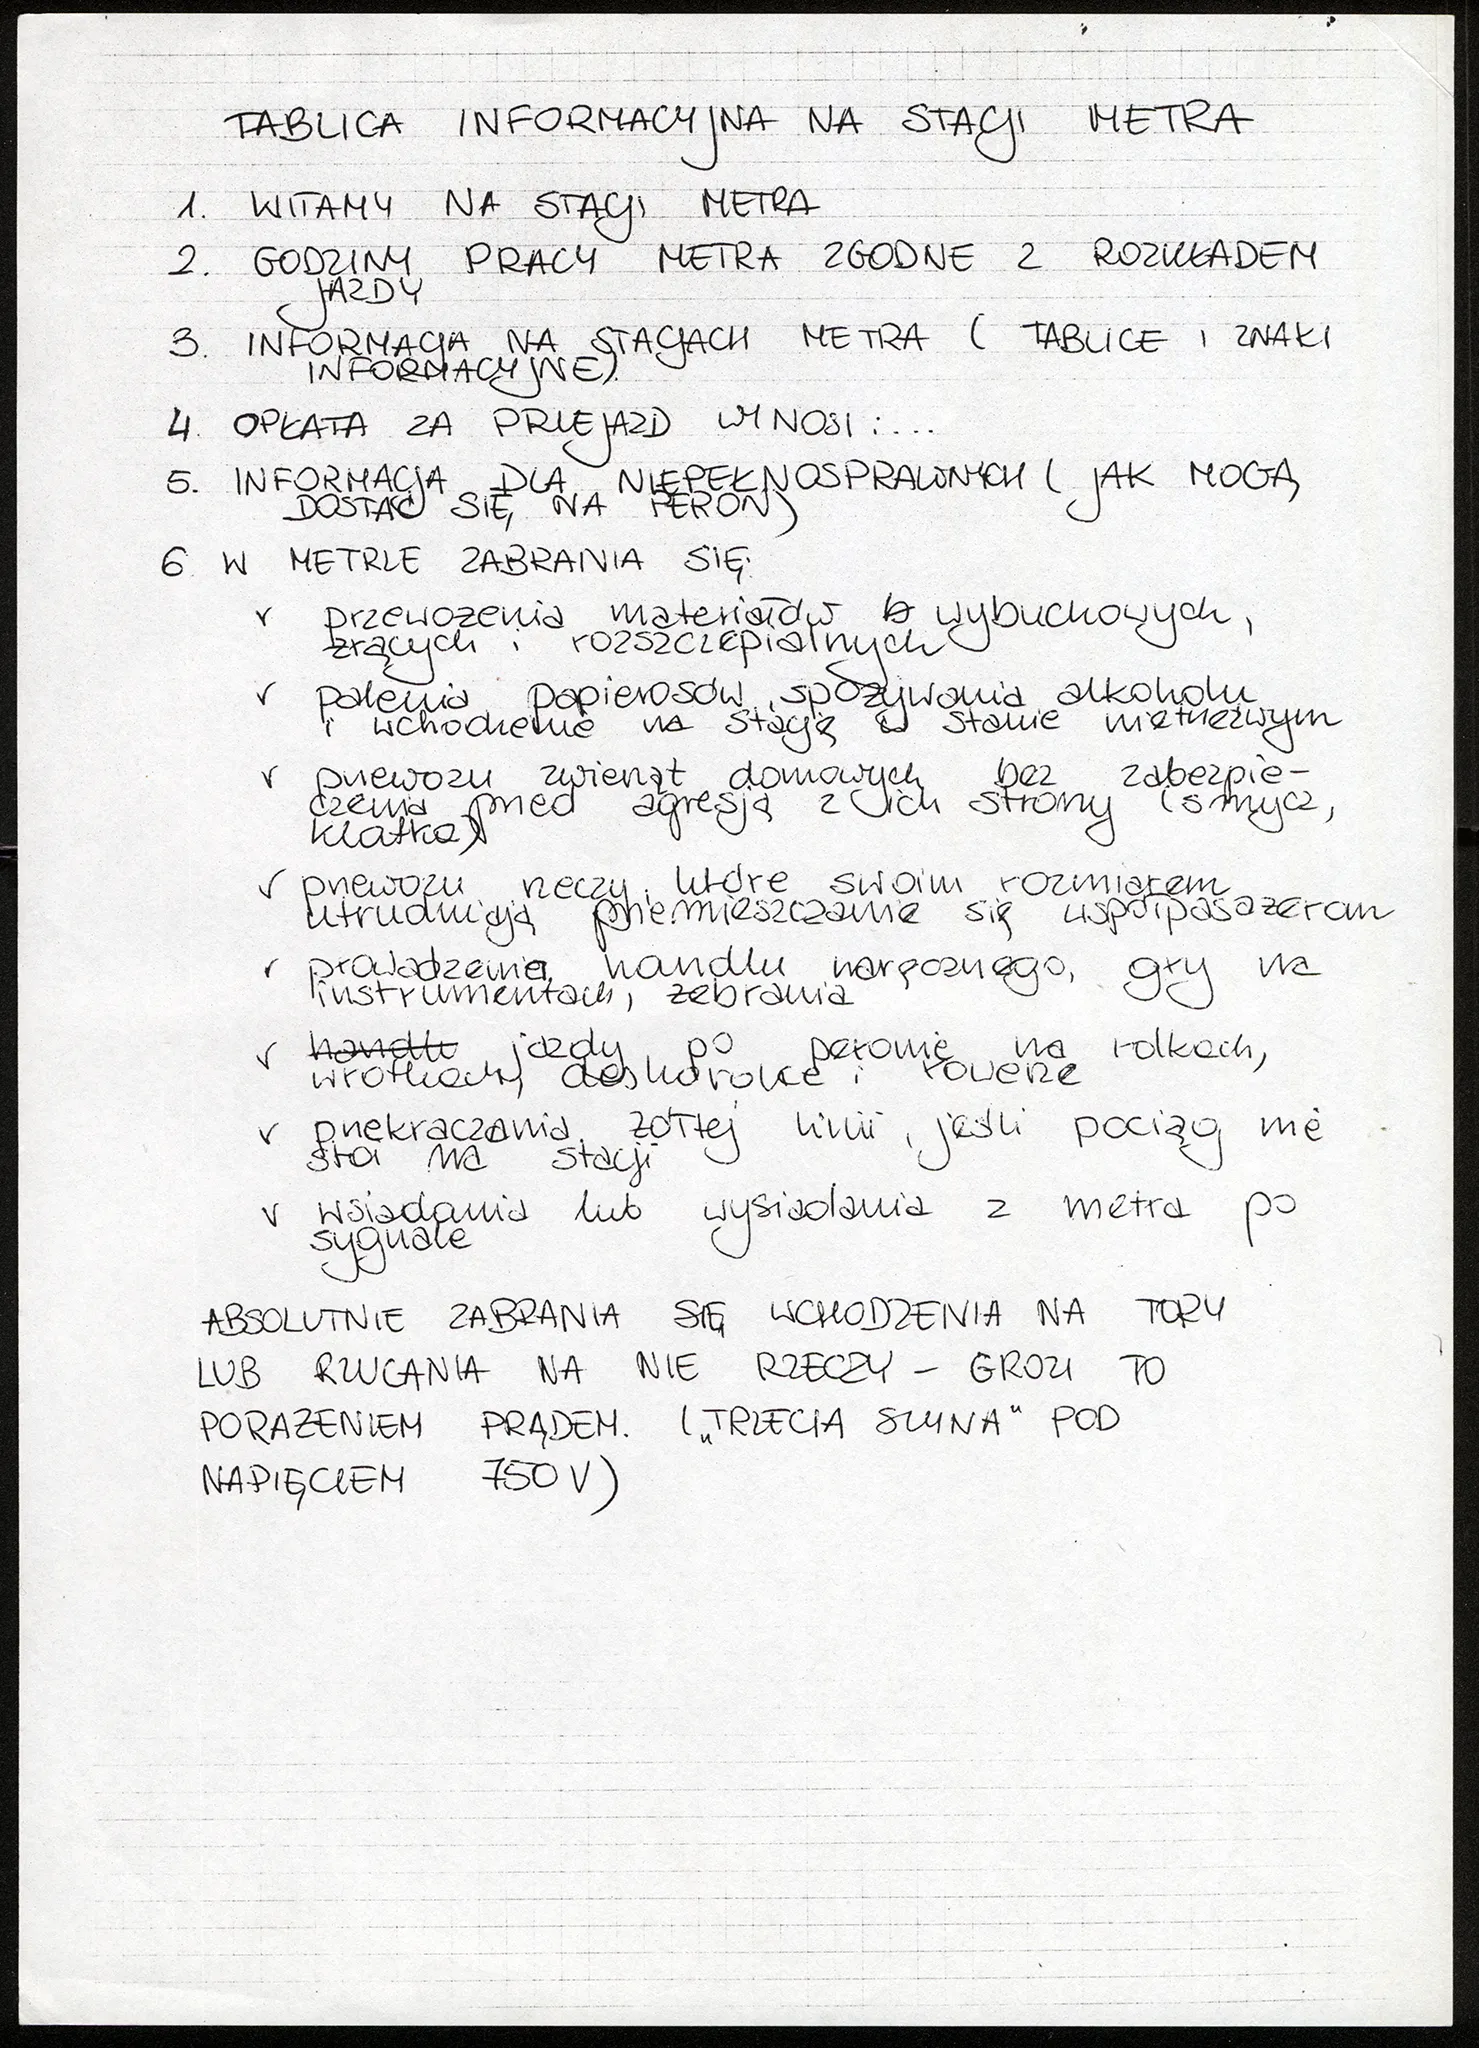 TABLICA INFORMACYJNA NA STACJI METRA
1. WITAMY NA STACJI METRA
2. GODZINY PRACY METRA ZGODNE Z ROZKŁADEM
JAZDY
3. INFORMACJA NA STACJACH METRA ( TABLICE I ZNAKI
INFORMACYJNE).
4. OPŁATA ZA PRZEJAZD WYNOSI : ...
5. INFORMACJA DLA NIEPEŁNOSPRAWNYCH ( JAK MOGĄ
DOSTAĆ SIĘ NA PERON)
6 W METRZE ZABRANIA SIĘ:
v przewożenia materiałów b wybuchowych,
żrących i rozszczepialnych
v palenia papierosów, spożywania alkoholu
i wchodzenie na stację w stanie nietrzeźwym
v przewozu zwierząt domowych bez zabezpie-
czenia przed agresją z ich strony (smycz,
klatka)
v przewozu rzeczy, które swoim rozmiarem
utrudniają przemieszczanie się współpasażerom
v prowadzenia handlu naręcznego, gry na
instrumentach, żebrania
v handlu jazdy po peronie na rolkach,
wrotkach, deskorolce i rowerze
v przekraczania żółtej linii, jeśli pociąg nie
stoi na stacji
v wsiadania lub wysiadania z metra po
sygnale
ABSOLUTNIE ZABRANIA SIĘ WCHODZENIA NA TORY
LUB RZUCANIA NA NIE RZECZY - GROZI TO
PORAŻENIEM PRĄDEM. („TRZECIA SZYNA" POD
NAPIĘCIEM 750 V)